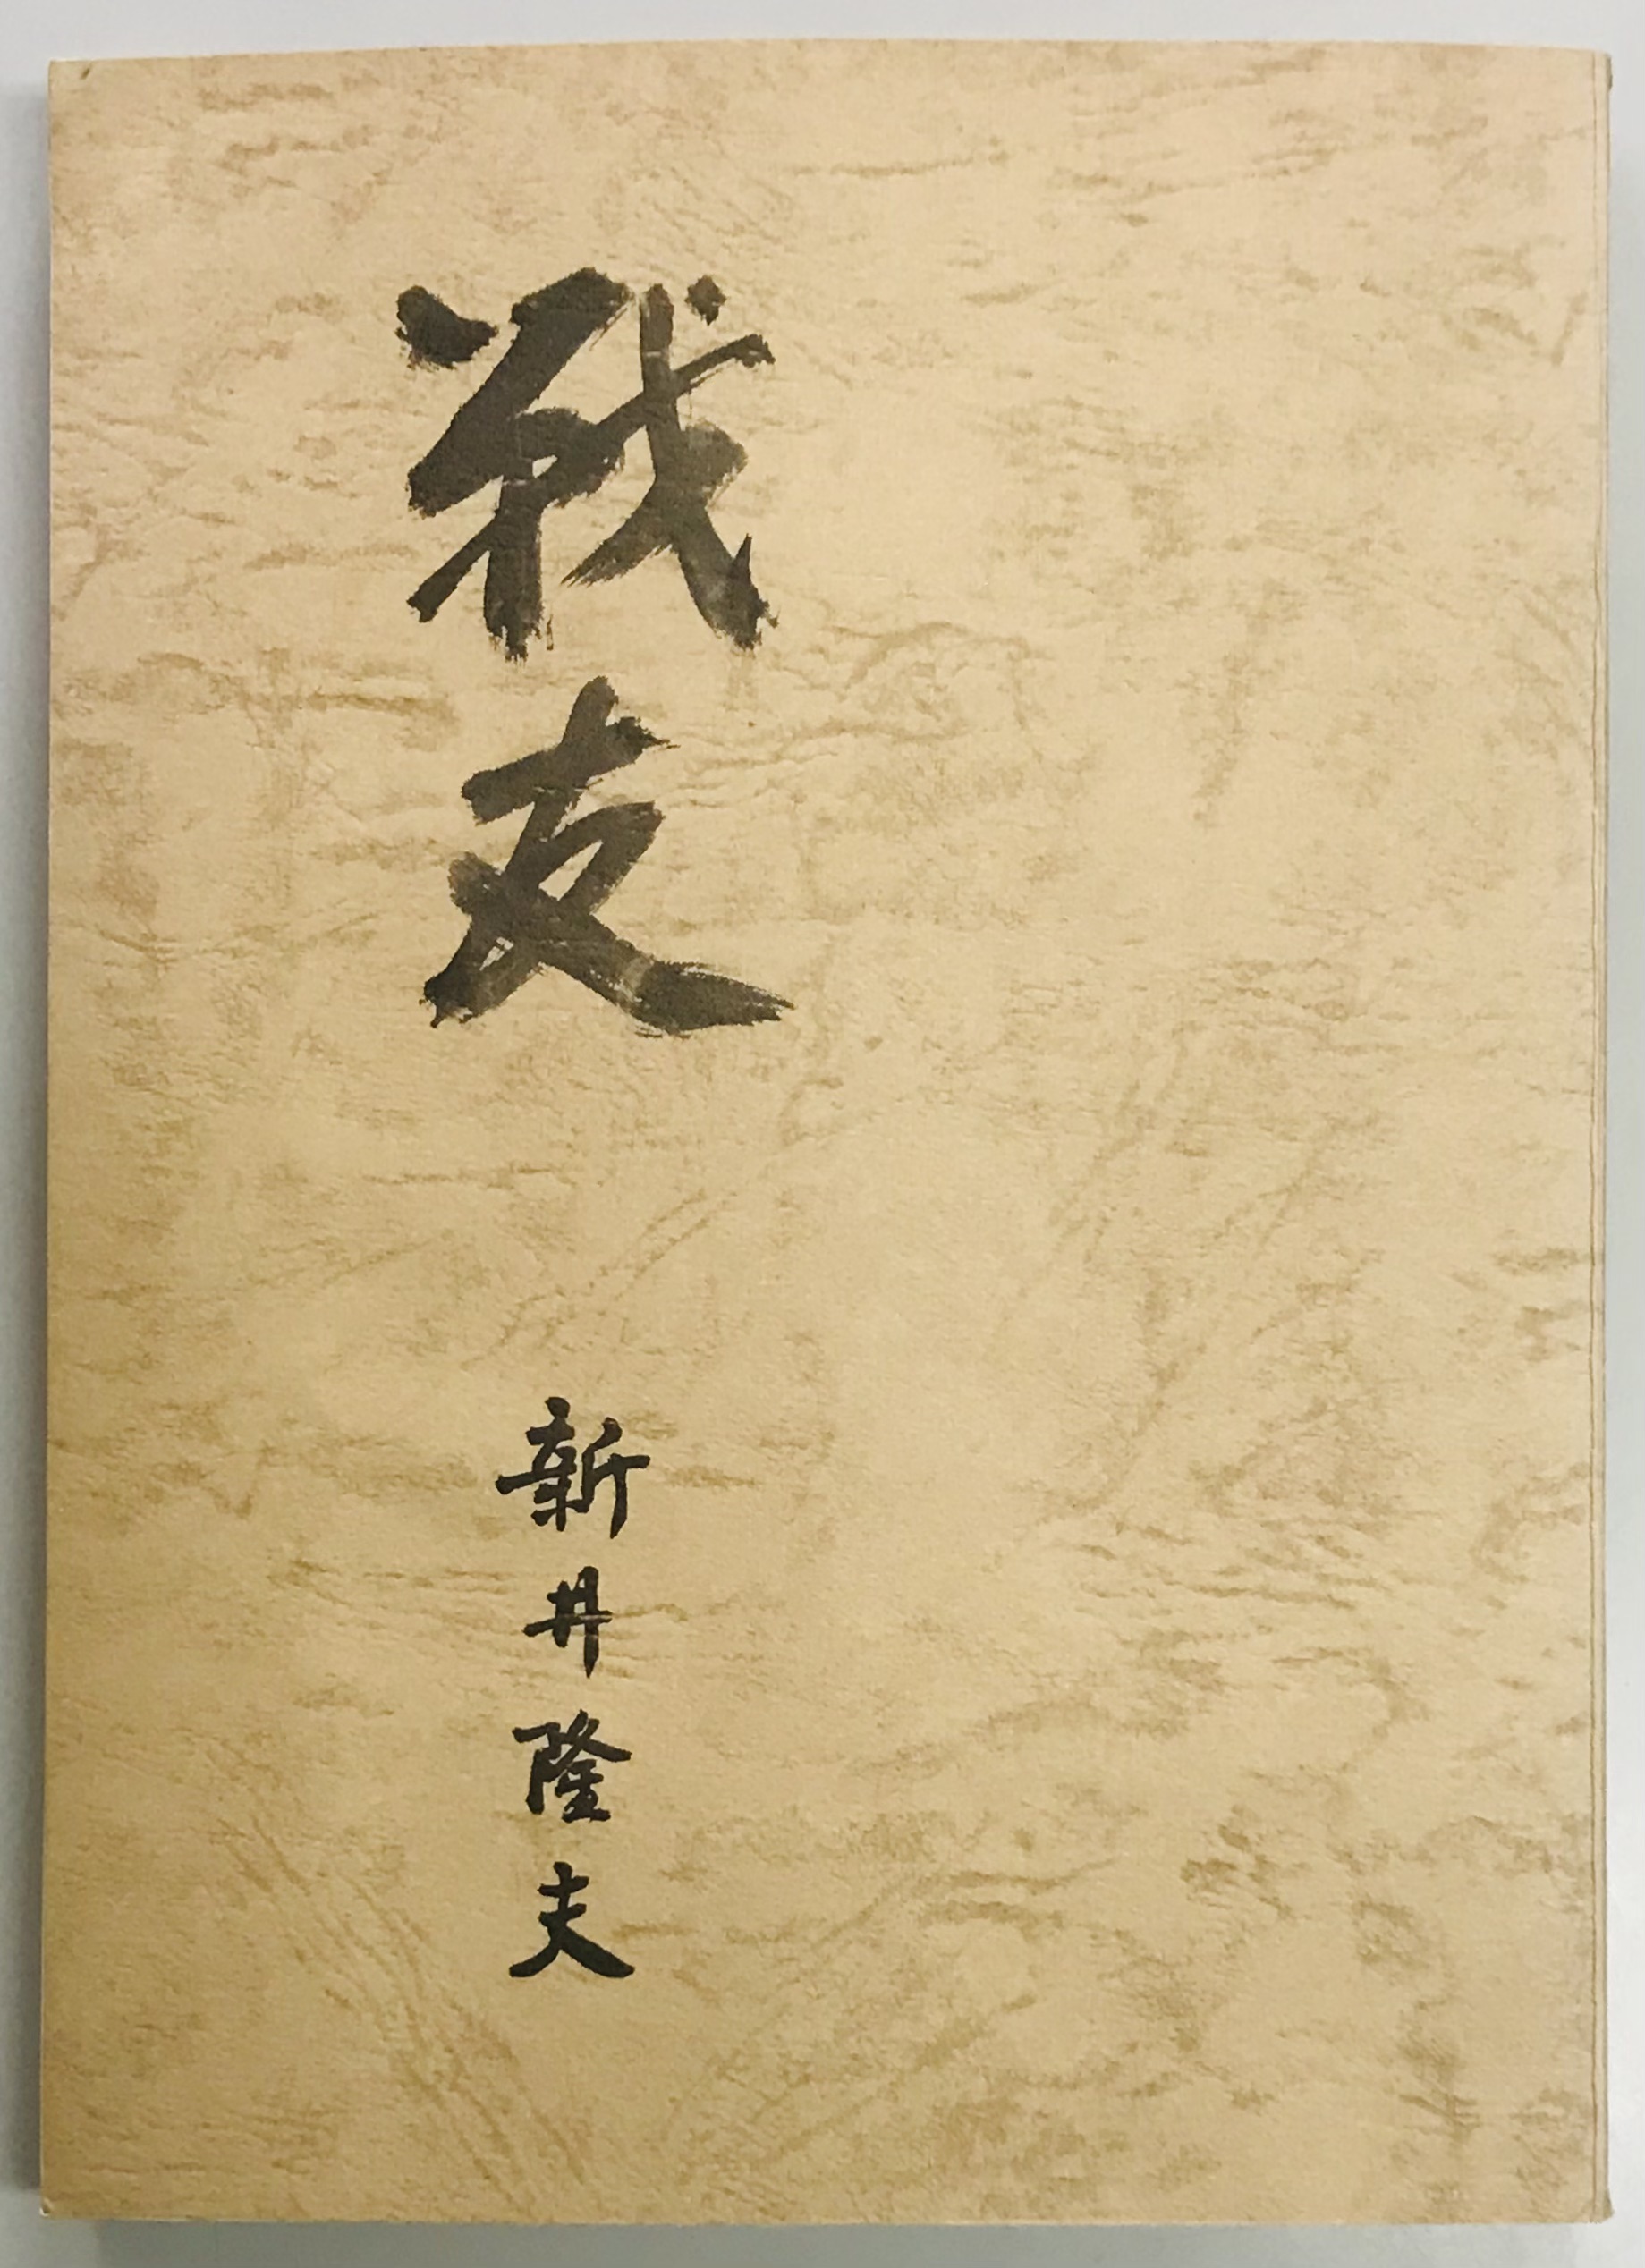 戦友
新井隆夫